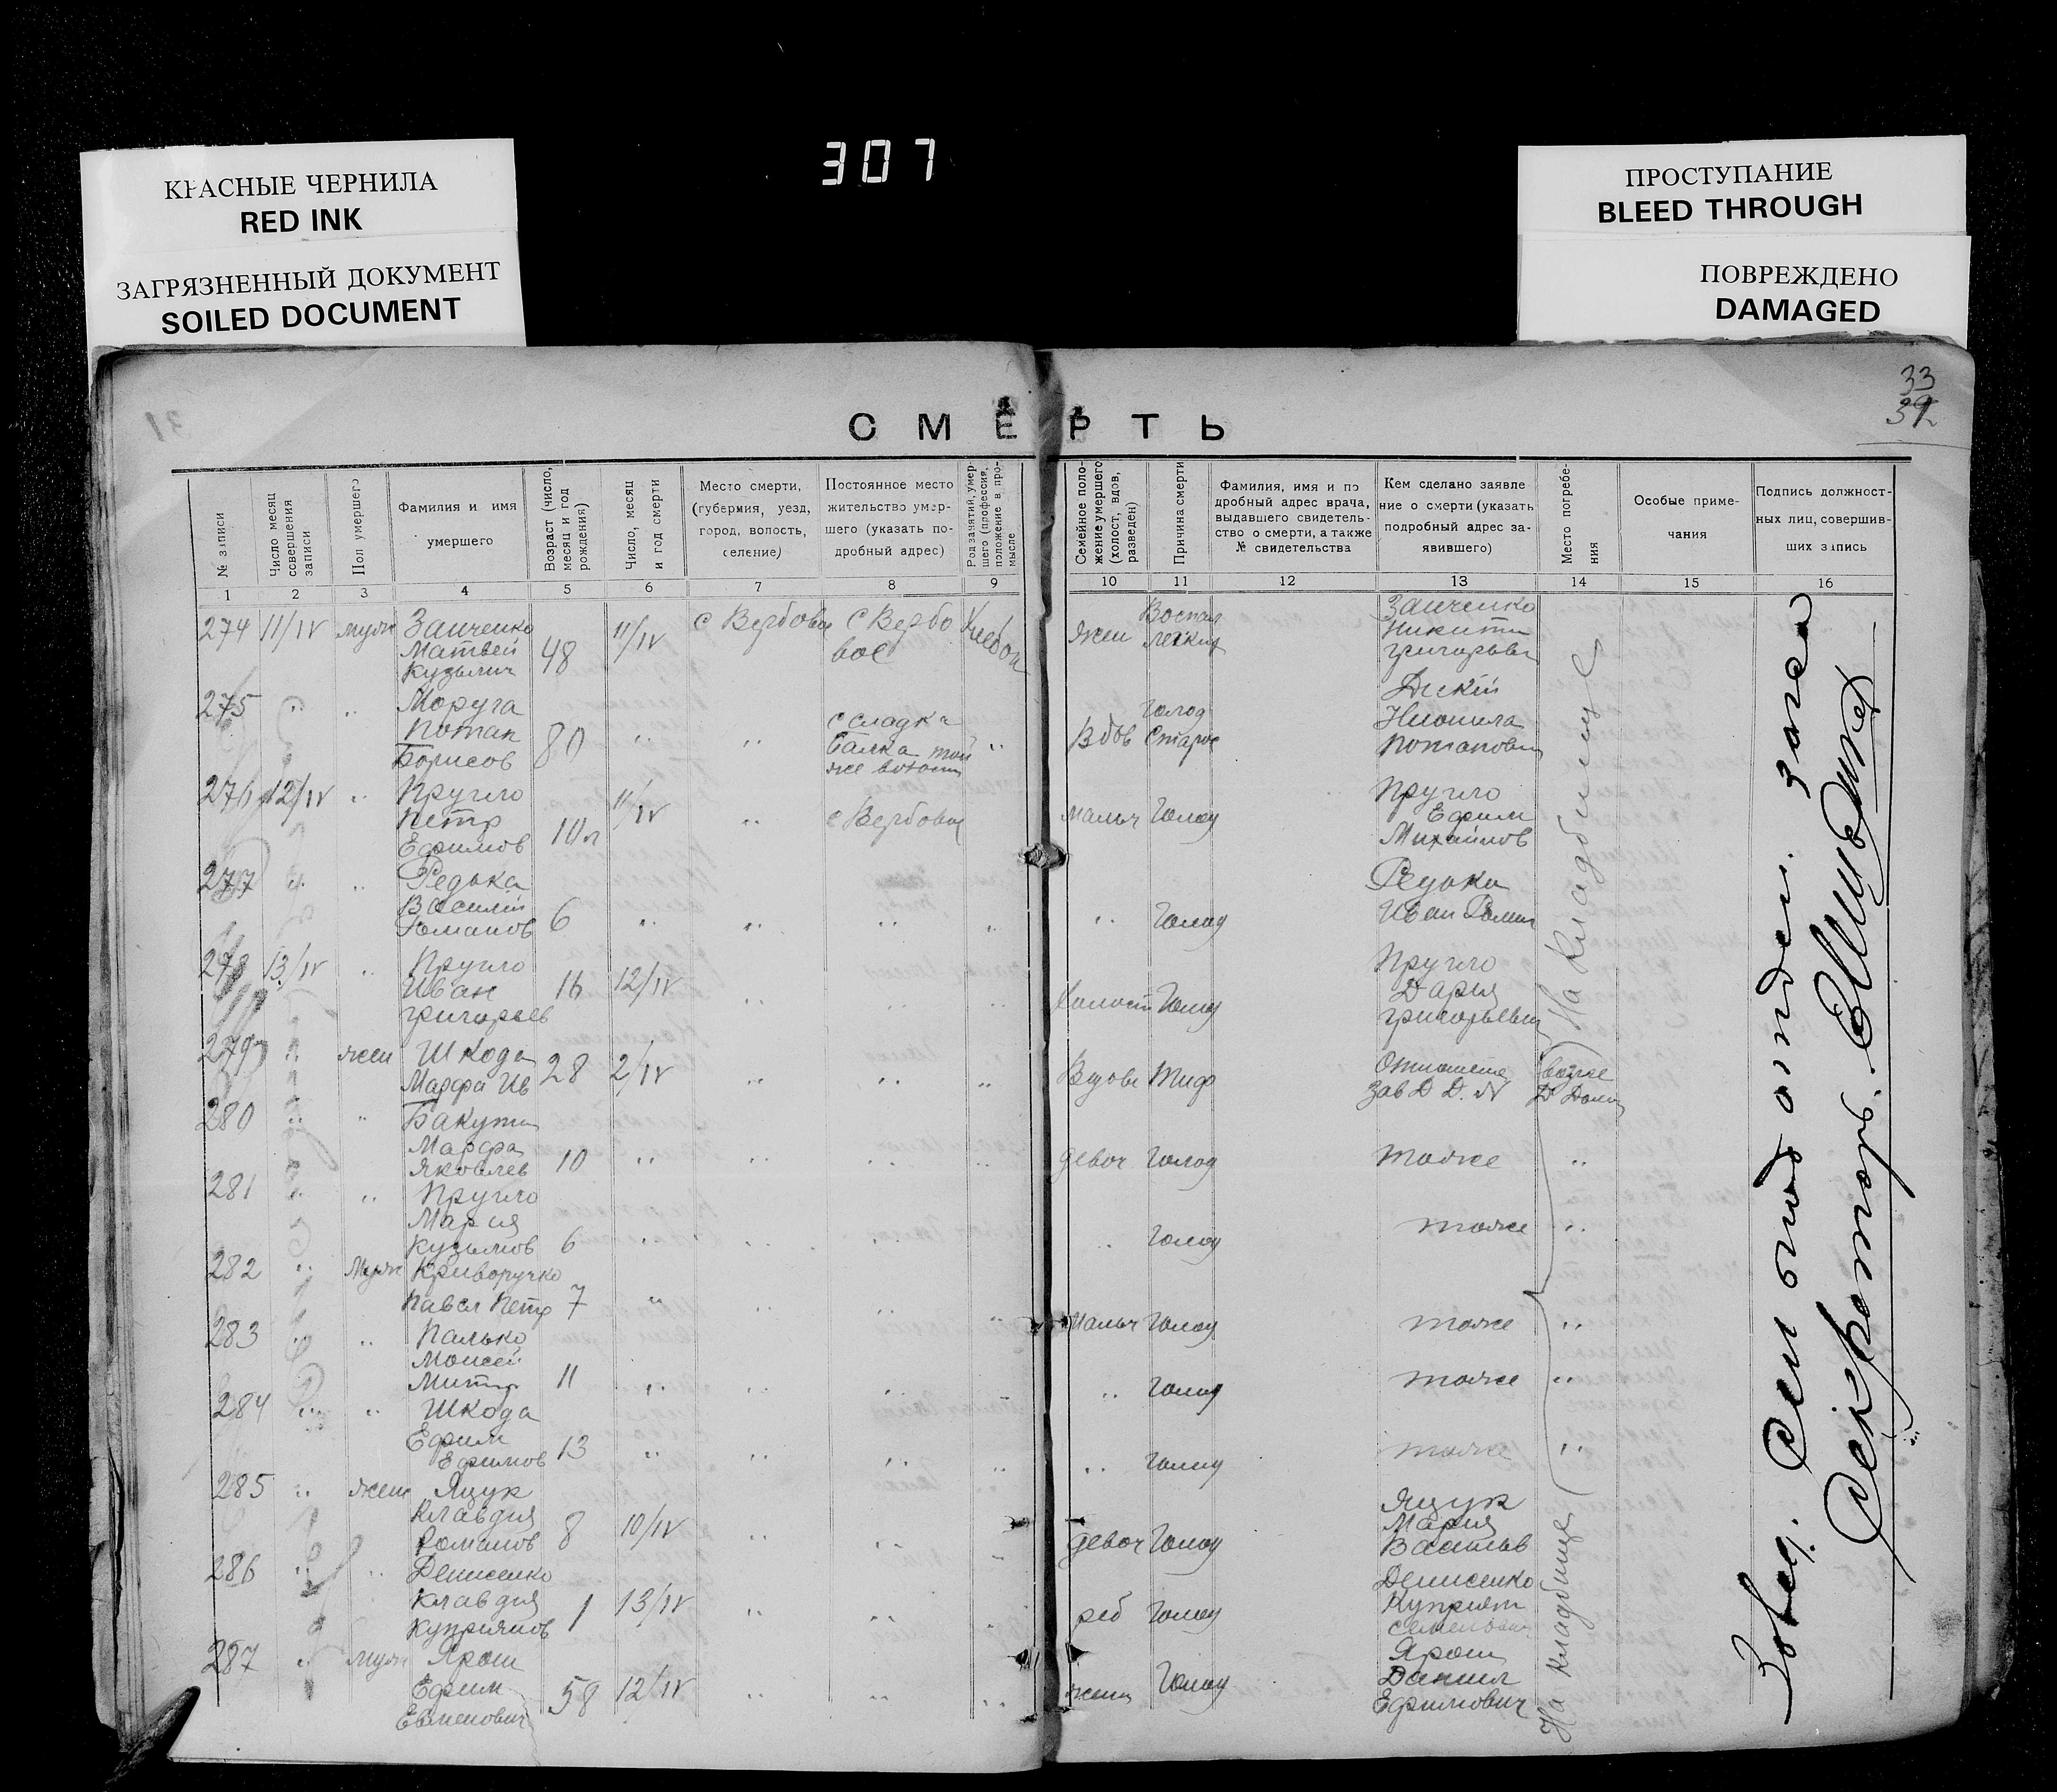 307
КРАСНЫЕ ЧЕРНИЛА
RED INK
ЗАГРЯЗНЕННЫЙ ДОКУМЕНТ
SOILED DOCUMENT
ПРОСТУПАНИЕ
BLEED THROUGH
ПОВРЕЖДЕНО
DAMAGED
33
31
СМЕРТЬ
№ записи
Число месяц совершения записи
Пол умершего
Фамилия и имя умершего
Возраст (число, месяц и год рождения)
Число, месяц и год смерти
Место смерти, (губермия, уезд, город, волость, селение)
Постоянное место жительство умершего (указать подробный адрес)
Род занятий, умершего (профессия, положение в промысле
Семейное положение умершего (холост, вдов, разведен)
Причина смерти
Фамилия, имя и подробный адрес врача, выдавшего свидетельство о смерти, а также № свидетельства
Кем сделано заявление о смерти (указать подробный адрес заявившего)
Место погребения
Особые примечания
Подпись должностных лиц, совершивших запись
1 2 3 4 5 6 7 8 9 10 11 12 13 14 15 16
274 11/IV муж Заиченко Матвей Кузьмич 48 11/IV с Вербовое с Вербовое Хлебоп жен Воспал легких Заиченко Никита Григорьев
275 " " Моруга Потап Борисов 80 " " с Сладка Балка той же волости " Вдов Голод Старос Дикий Потапович
276 12/IV " Пругло Петр Ефимов 10 л 11/IV " с Вербовое мальч Голод Пругло Ефим Михайлов
277 " " Редька Василий Романов 6 " " " " " Голод Редька Иван Роман
278 13/IV " Пругло Иван Григорьев 16 12/IV " " " холост Голод Пругло Дария Григорьевна
На Кладбище
279 " жен Шкода Марфа Ив 28 2/IV " " " Вдова Тиф Отношение Зав Д Д. № возле Д Дома
280 " " Бакута Марфа Яковлев 10 " " " " девоч Голод тоже "
281 " " Пругло Мария Кузьмов 6 " " " " Голод тоже "
282 " Муж Криворучко Павел Петр 7 " " " " Мальч Голод тоже "
283 " " Палько Моисей Митр 11 " " " " Голод тоже "
284 " " Шкода Ефим Ефимов 13 " " " " " Голод тоже "
285 " жен Яцук Клавдия Романов 8 10/IV " " девоч Голод Яцук Мария Васильв
286 " " Денисенко Клавдия Куприянов 1 13/IV " " " реб Голод Денисенко Куприян Семенович
287 " Муж Ярош Ефим Евменович 58 12/IV " " " жен Голод Ярош Данил Ефимович
На Кладбище
Завед.
Секретарь